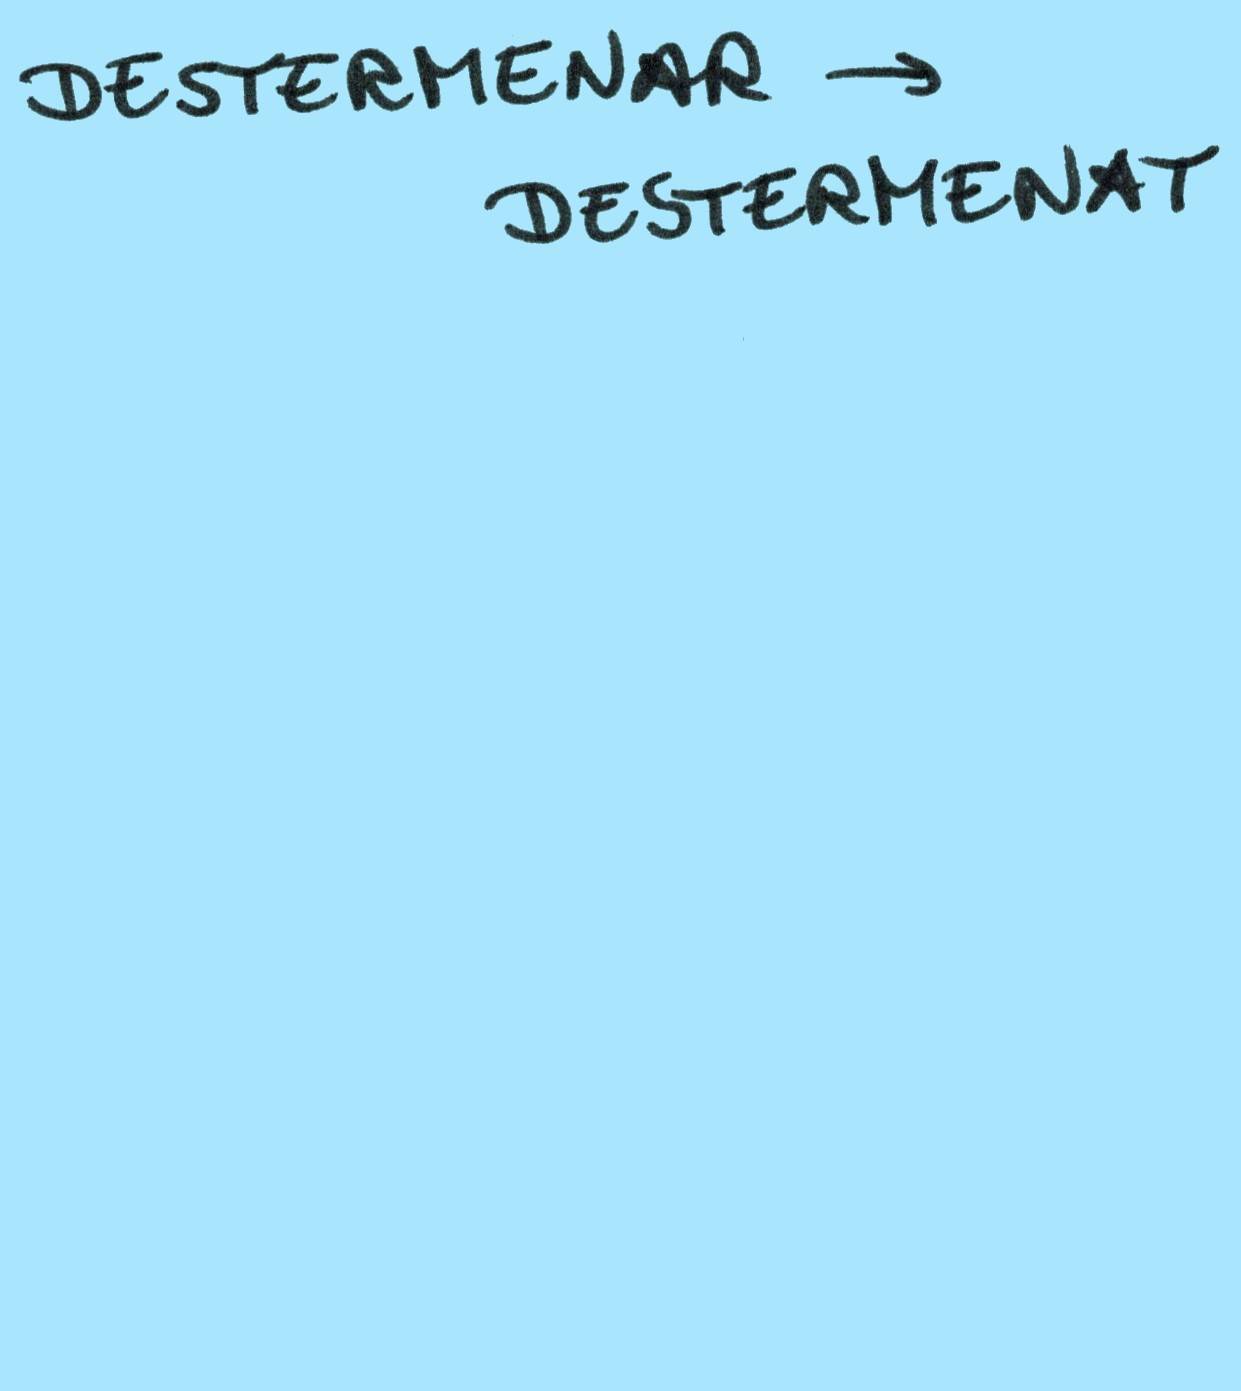 DESTERMENAR →
DESTERMENAT